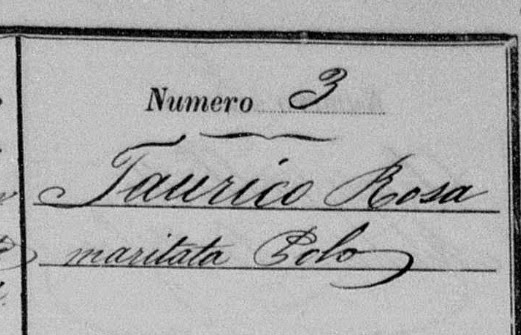 Numero 3
Taurico Rosa
maritata Polo